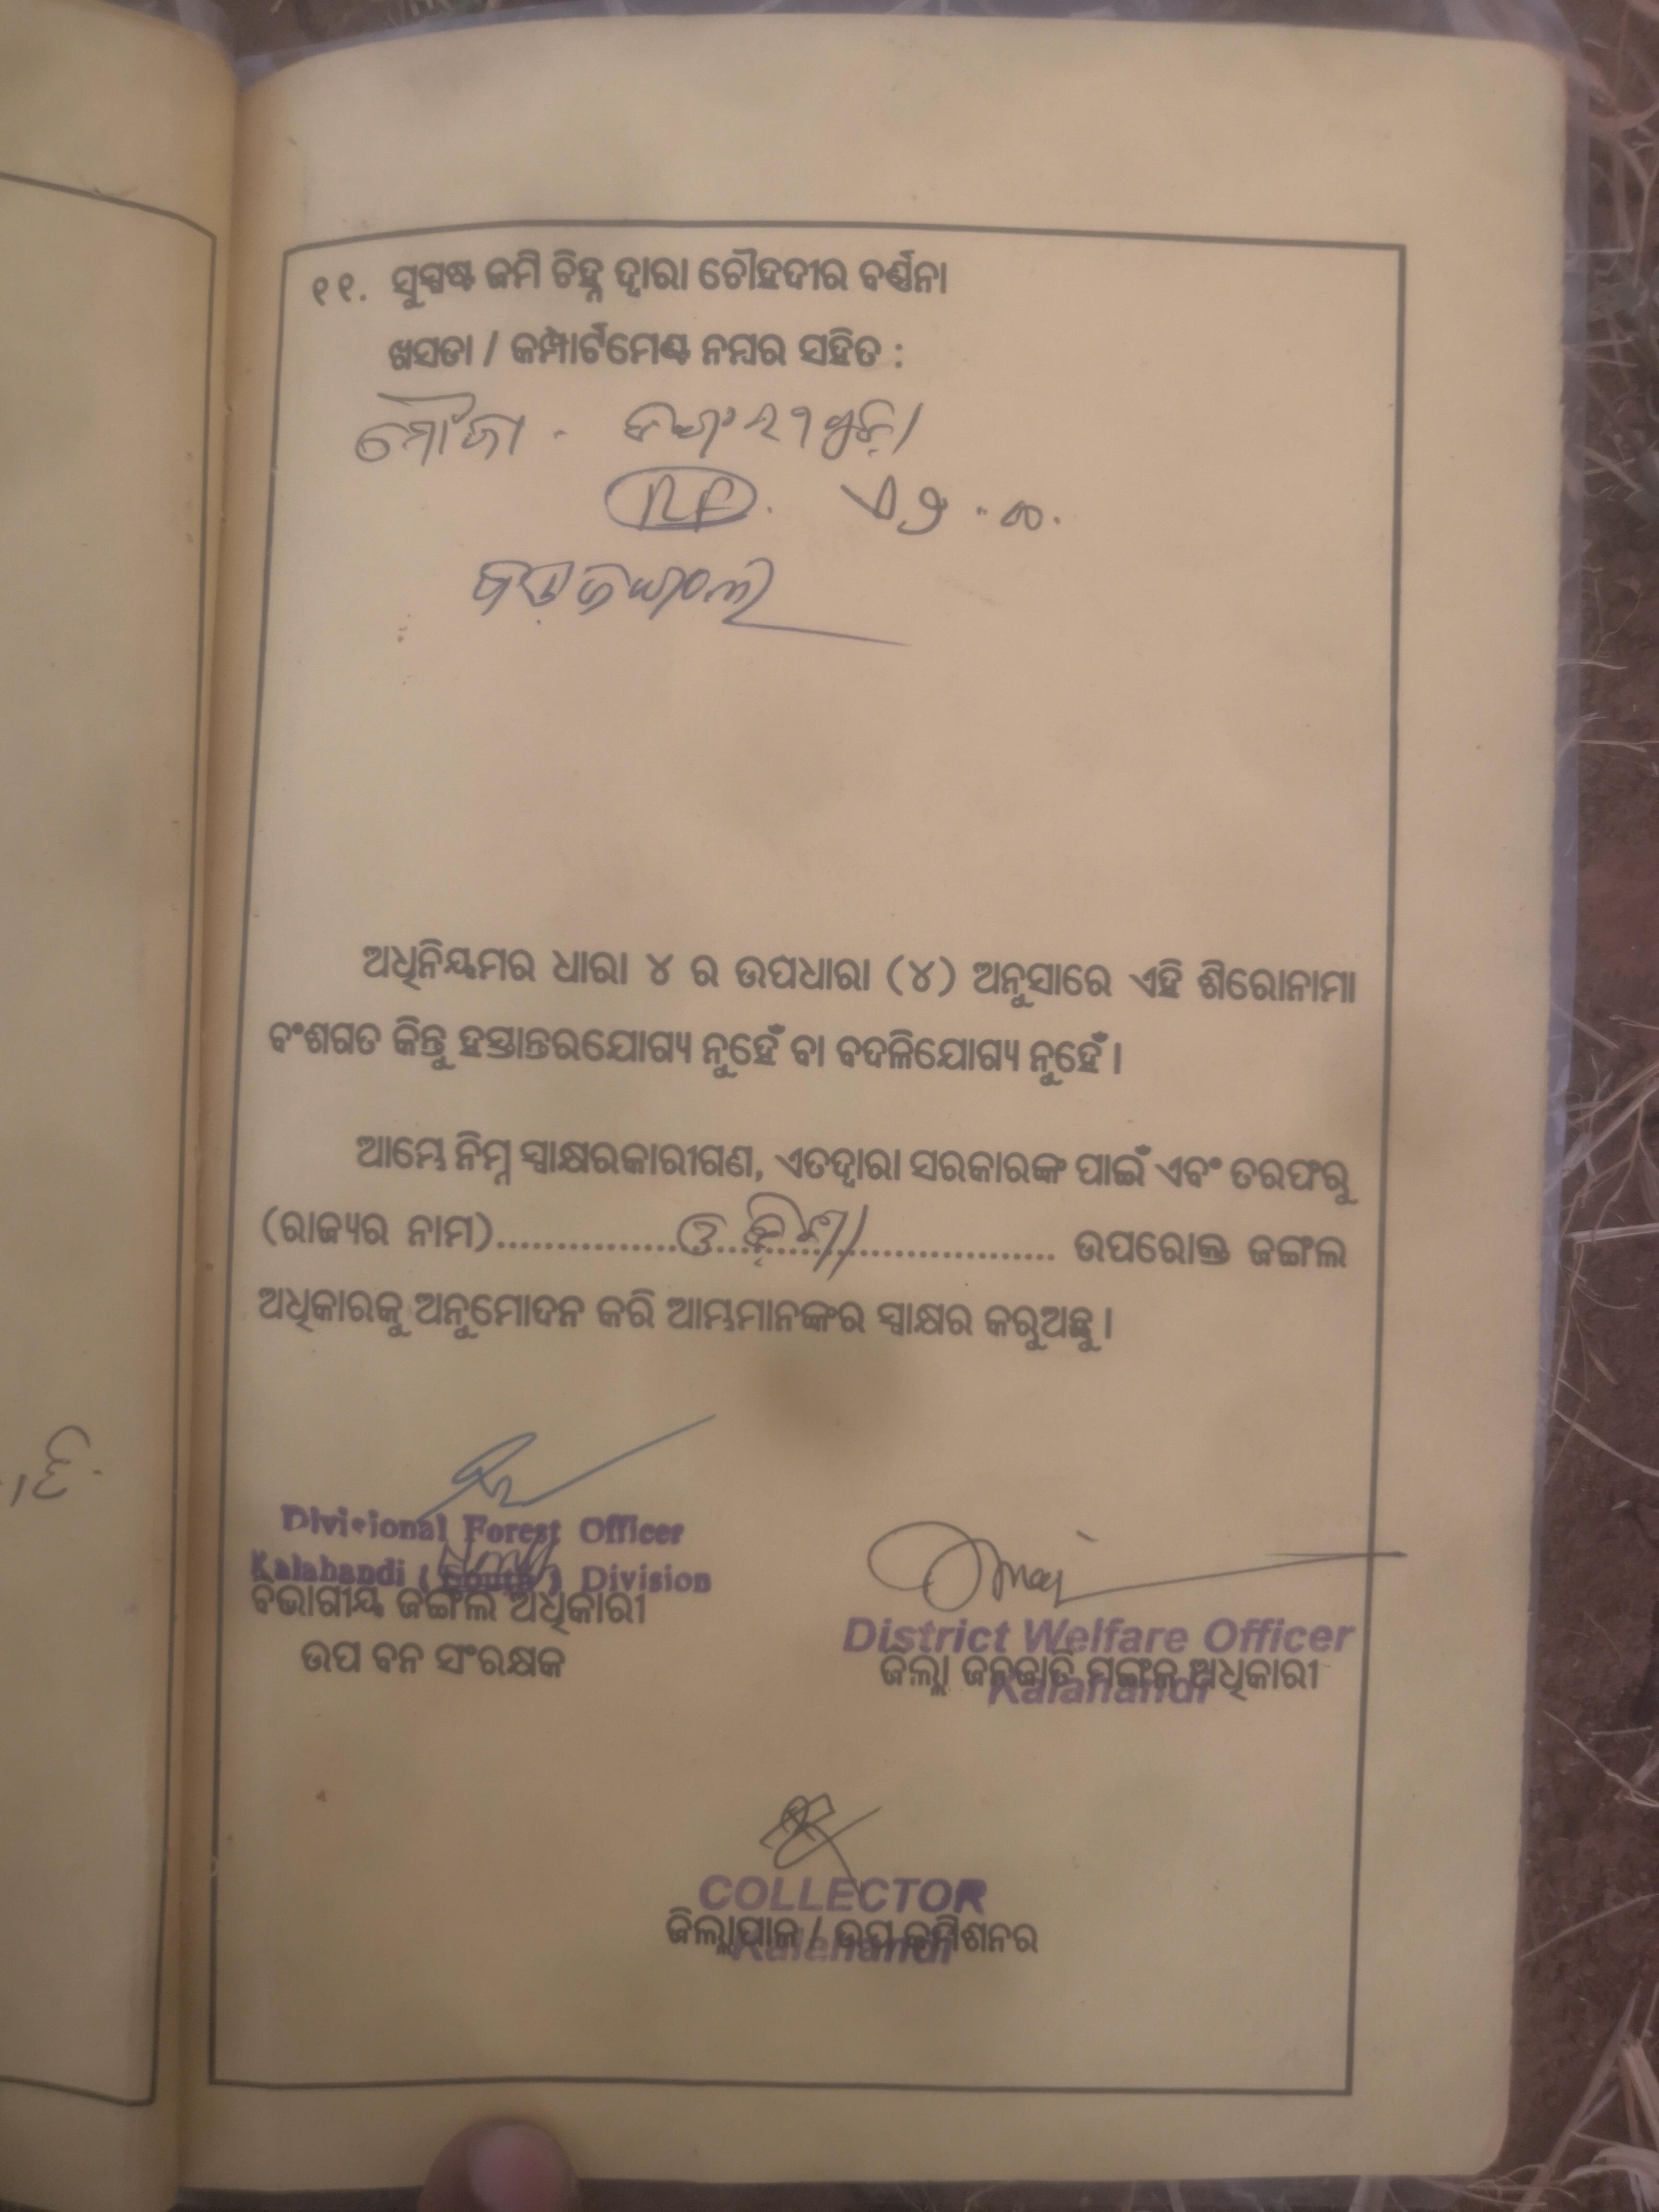 ୧୧. ସୁସ୍ପଷ୍ଟ ଜମି ଚିହ୍ନ ଦ୍ୱାରା ଚୌହଦୀର ବର୍ଣ୍ଣନା
ଖସଡା / କମ୍ପାର୍ଟମେଣ୍ଟ ନମ୍ବର ସହିତ :
ମୌଜା -
RF.
ଅଧିନିୟମର ଧାରା ୪ ର ଉପଧାରା (୪) ଅନୁସାରେ ଏହି ଶିରୋନାମା
ବଂଶଗତ କିନ୍ତୁ ହସ୍ତାନ୍ତରଯୋଗ୍ୟ ନୁହେଁ ବା ବଦଳିଯୋଗ୍ୟ ନୁହେଁ ।
ଆମ୍ଭେ ନିମ୍ନ ସ୍ୱାକ୍ଷରକାରୀଗଣ, ଏତଦ୍ୱାରା ସରକାରଙ୍କ ପାଇଁ ଏବଂ ତରଫରୁ
(ରାଜ୍ୟର ନାମ)...............ଓଡ଼ିଶା................ ଉପରୋକ୍ତ ଜଙ୍ଗଲ
ଅଧିକାରକୁ ଅନୁମୋଦନ କରି ଆମ୍ଭମାନଙ୍କର ସ୍ୱାକ୍ଷର କରୁଅଛୁ ।
Divisional Forest Officer
Kalahandi (South) Division
ବିଭାଗୀୟ ଜଙ୍ଗଲ ଅଧିକାରୀ
ଉପ ବନ ସଂରକ୍ଷକ
District Welfare Officer
ଜିଲ୍ଲା ଜନଜାତି ମଙ୍ଗଳ ଅଧିକାରୀ
Kalahandi
COLLECTOR
ଜିଲ୍ଲାପାଳ / ଉପ କମିଶନର
Kalahandi